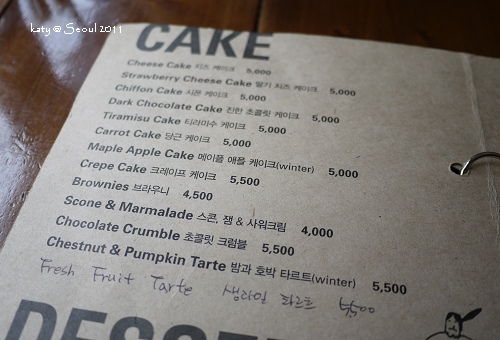 katy @ Seoul 2011
CAKE
Cheese Cake 치즈 케이크 5,000
Strawberry Cheese Cake 딸기 치즈 케이크 5,000
Chiffon Cake 시폰 케이크 5,000
Dark Chocolate Cake 진한 초콜릿 케이크 5,000
Tiramisu Cake 티라미수 케이크 5,000
Carrot Cake 당근 케이크 5,000
Maple Apple Cake 메이플 애플 케이크(winter) 5,000
Crepe Cake 크레이프 케이크 5,500
Brownies 브라우니 4,500
Scone & Marmalade 스콘, 잼 & 사워크림 4,000
Chocolate Crumble 초콜릿 크럼블 5,500
Chestnut & Pumpkin Tarte 밤과 호박 타르트(winter) 5,500
Fresh Fruit Tarte 생과일 타르트